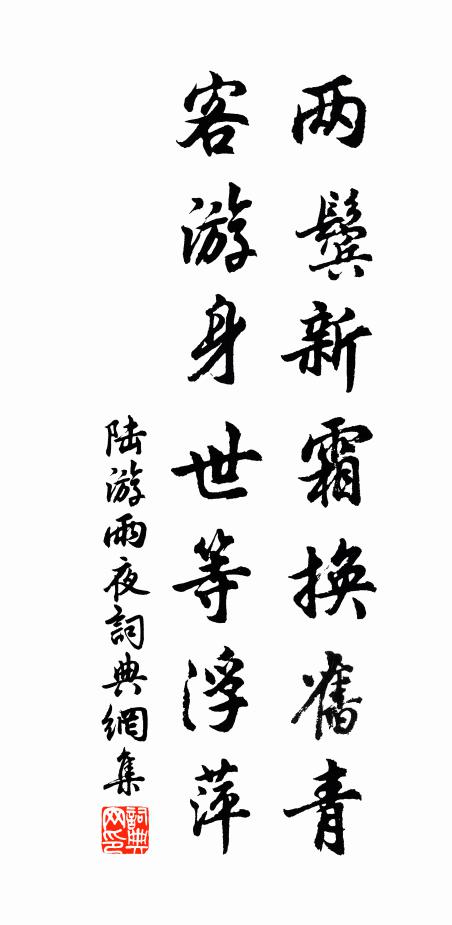 两鬓新霜换舊青
客游身世等浮萍
陆游雨夜詞典網集
詞典网印